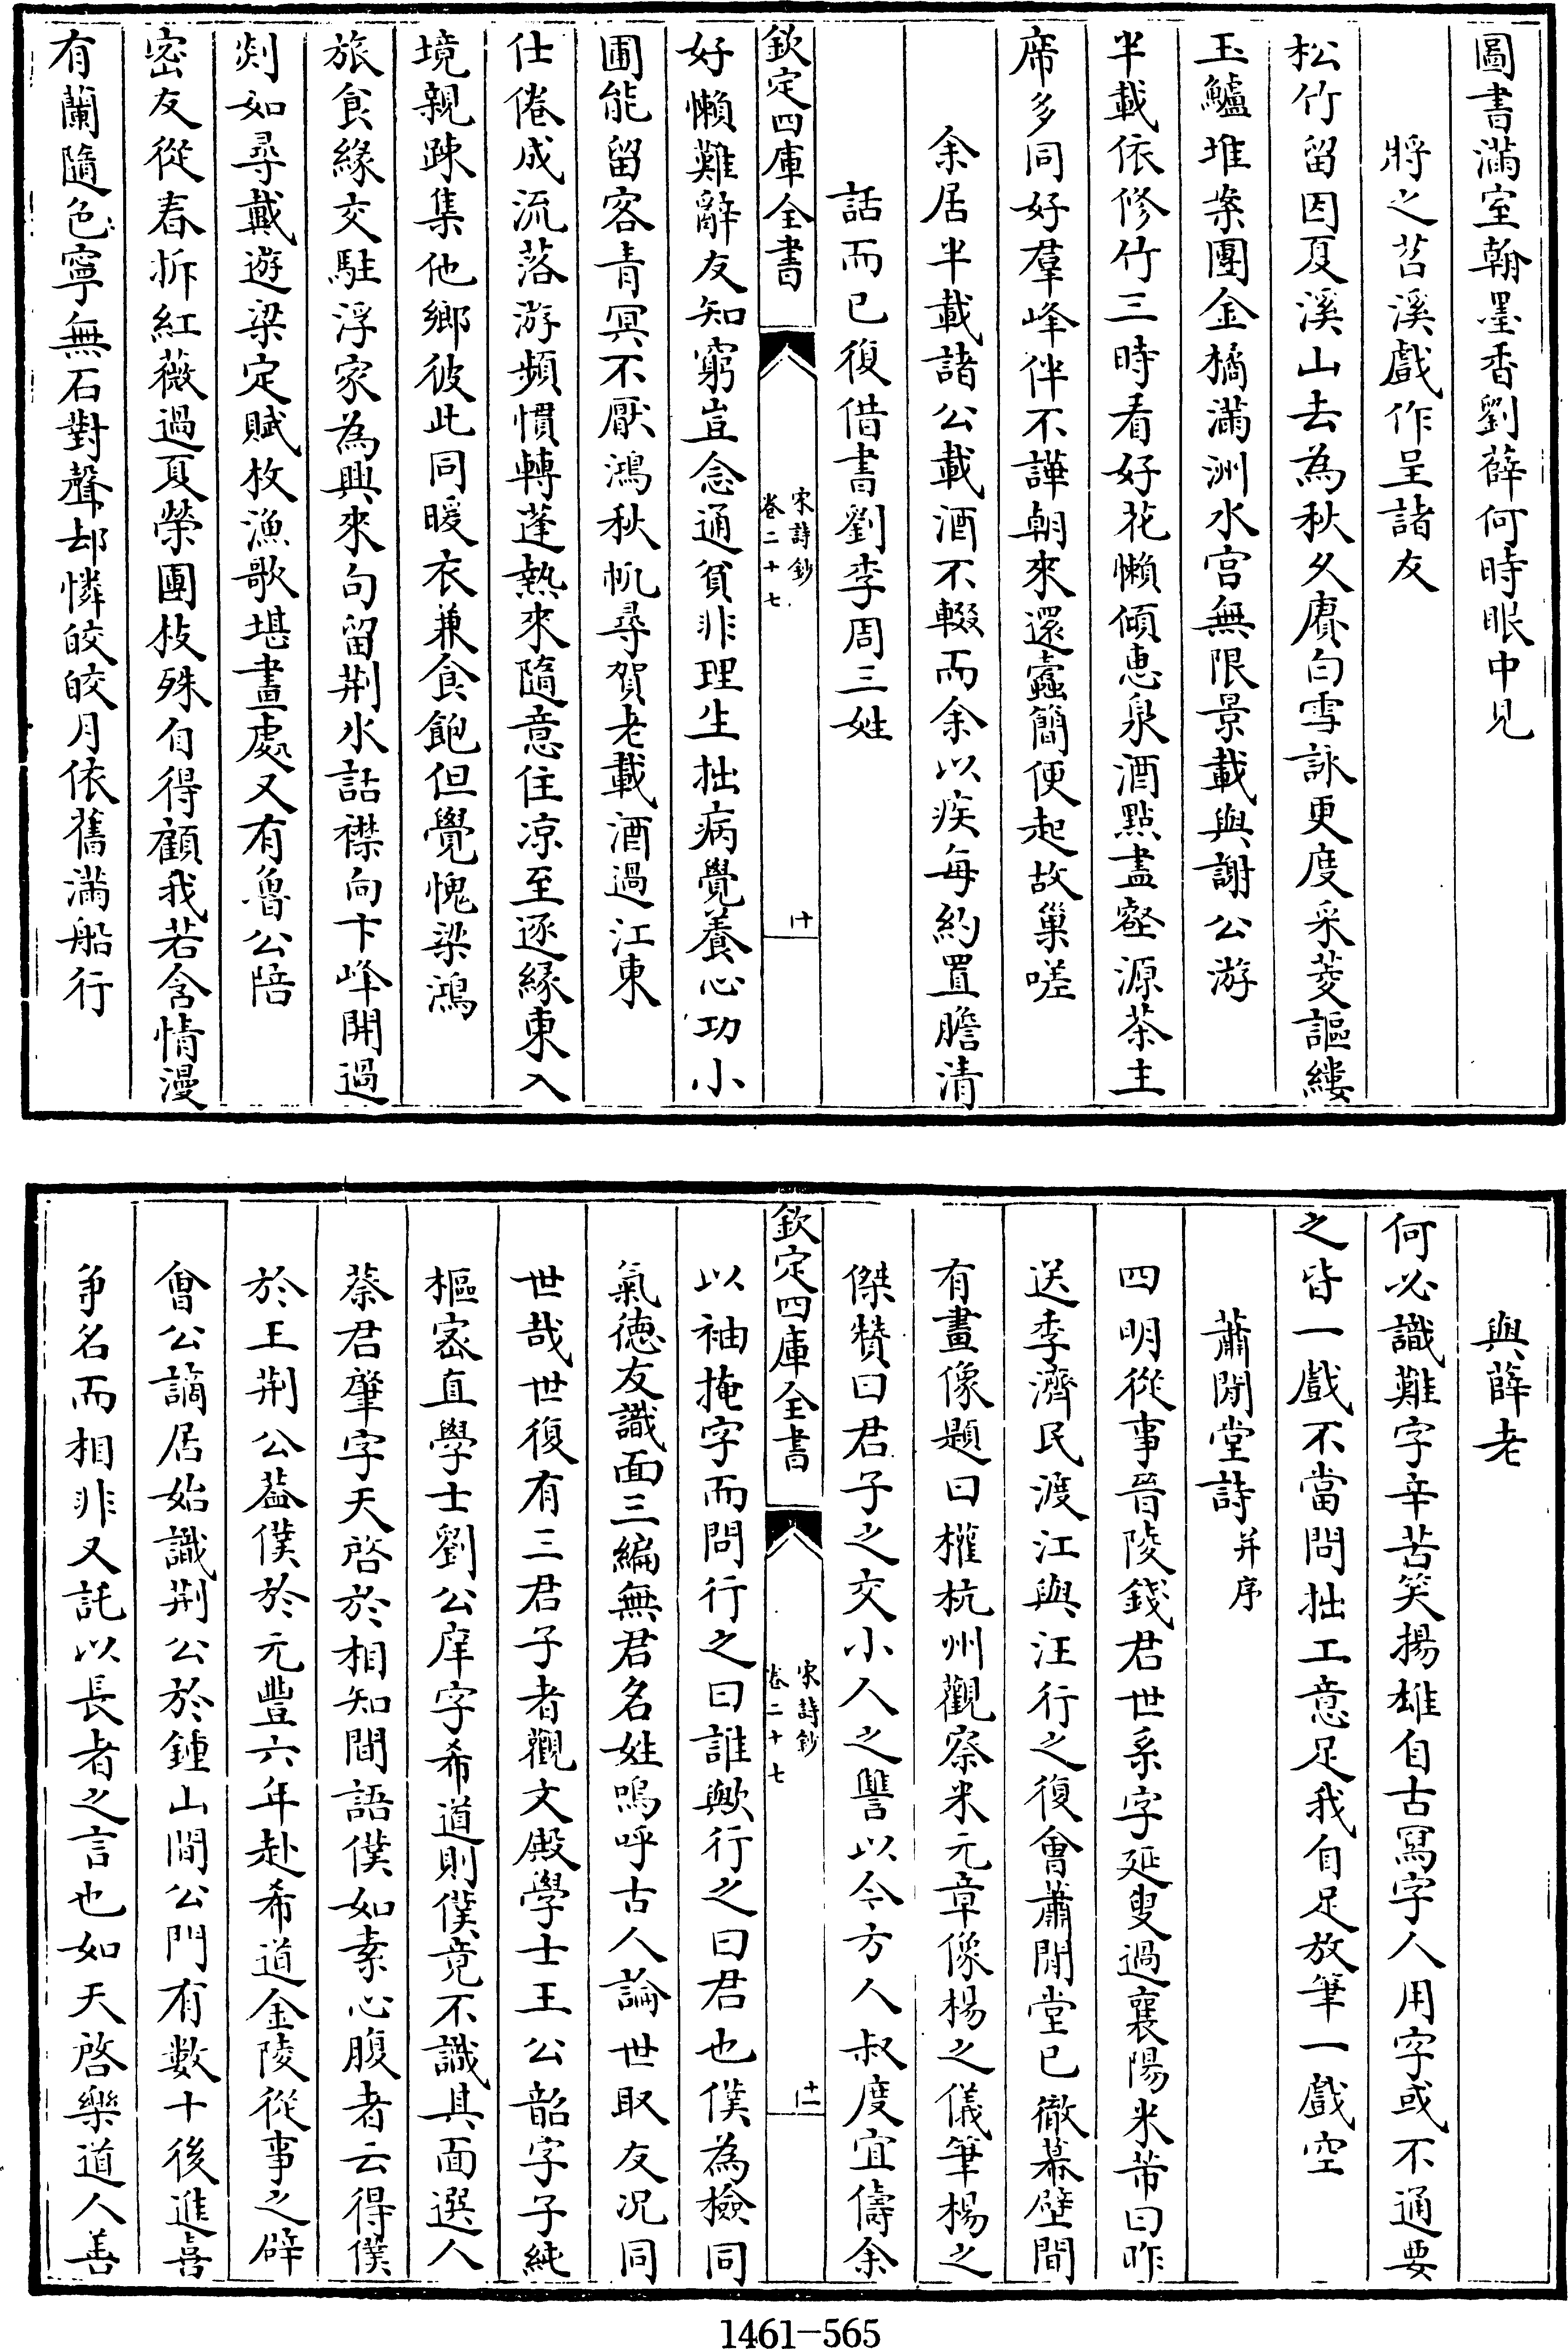 圖書滿室翰墨香劉薛何時眼中見
將之苕溪戲作呈諸友
松竹留因夏溪山去為秋久賡白雪詠更度采菱謳縷
玉鱸堆案團金橘滿洲水宫無限景載與謝公游
半載依修竹三時看好花懶傾惠泉酒點盡壑源茶主
席多同好羣峰伴不譁朝來還蠹簡便起故巢嗟
余居半載諸公載酒不輟而余以疾每約置膳清
話而已復借書劉李周三姓
欽定四庫全書
宋詩鈔
卷二十七
十
好懶難辭友知窮豈念通貧非理生拙病覺養心功小
圃能留客青冥不厭鴻秋帆尋賀老載酒過江東
仕倦成流落游頻慣轉蓬熱來隨意住凉至逐縁東入
境親疎集他鄉彼此同暖衣兼食飽但覺愧梁鴻
旅食緣交駐浮家為興來句留荆水話襟向卞峰開過
剡如尋戴遊梁定賦枚漁歌堪畫處又有魯公陪
密友從春拆紅薇過夏榮團枝殊自得顧我若含情漫
有蘭隨色寧無石對聲却憐皎皎月依舊滿船行
與薛老
何必識難字辛苦笑揚雄自古冩字人用字或不通要
之皆一戲不當問拙工意足我自足放筆一戲空
蕭閒堂詩并序
四明從事晉陵錢君世系字延叟過襄陽米芾曰昨
送李濟民渡江與汪行之復會蕭閒堂已徹幕壁間
有畫像題曰權杭州觀察米元章像楊之儀筆楊之
傑贊曰君子之交小人之讐以今方人叔度宜儔余
欽定四庫全書
宋詩鈔
卷二十七
十一
以袖掩字而問行之曰誰歟行之曰君也僕為檢同
氣徳友識面三編無君名姓嗚呼古人論世取友况同
世哉世復有三君子者觀文殿學士王公韶字子純
樞宻直學士劉公庠字希道則僕竟不識其面選人
蔡君肇字天啓於相知間語僕如素心腹者云得僕
於王荆公葢僕於元豐六年赴希道金陵從事之辟
會公謫居始識荆公於鍾山閒公門有數十後進喜
爭名而相非又託以長者之言也如天啓樂道人善
1461-565